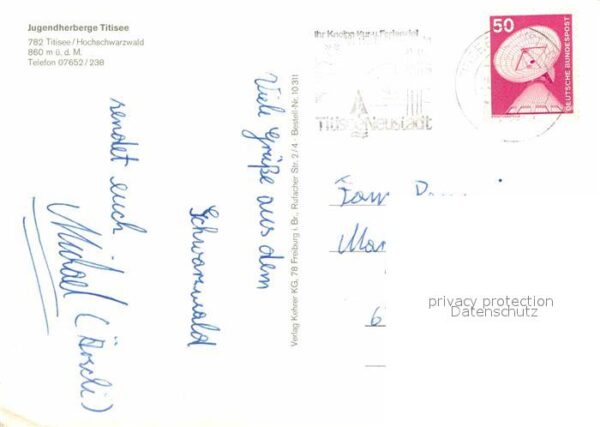 Jugendherberge Titisee
782 Titisee/Hochschwarzwald
860 m ü. d. M.
Telefon 07652/238
Viele Grüße aus dem
Schwarzwald
sendet euch
Michael
Verlag Kehrer KG, 78 Freiburg i. Br., Rufacher Str. 2/4 · Bestell-Nr. 10.311
Ihr Kneipp-Kur-u. Ferienziel
Titisee-Neustadt
50
DEUTSCHE BUNDESPOST
Fam. D
Mar
6
privacy protection
Datenschutz